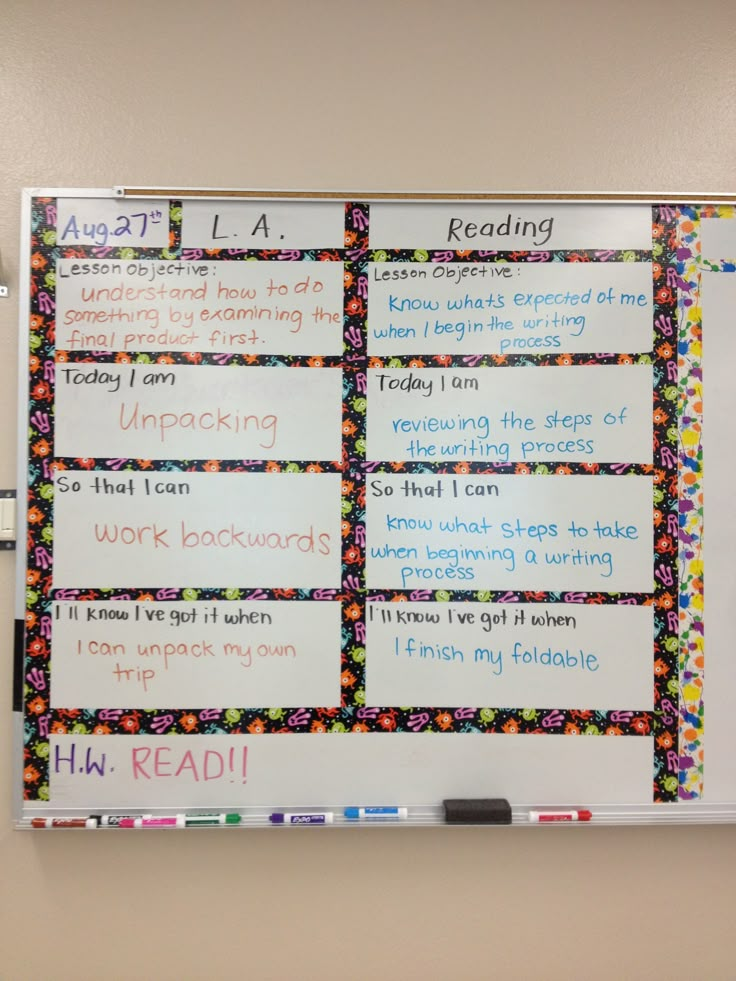 Aug. 27th
L. A.
Reading
Lesson Objective:
understand how to do
something by examining the
final product first.
Lesson Objective:
Know what's expected of me
when I begin the writing
process
Today I am
Unpacking
Today I am
reviewing the steps of
the writing process
So that I can
work backwards
So that I can
know what steps to take
when beginning a writing
process
I'll know I've got it when
I can unpack my own
trip
I'll know I've got it when
I finish my foldable
H.W. READ!!